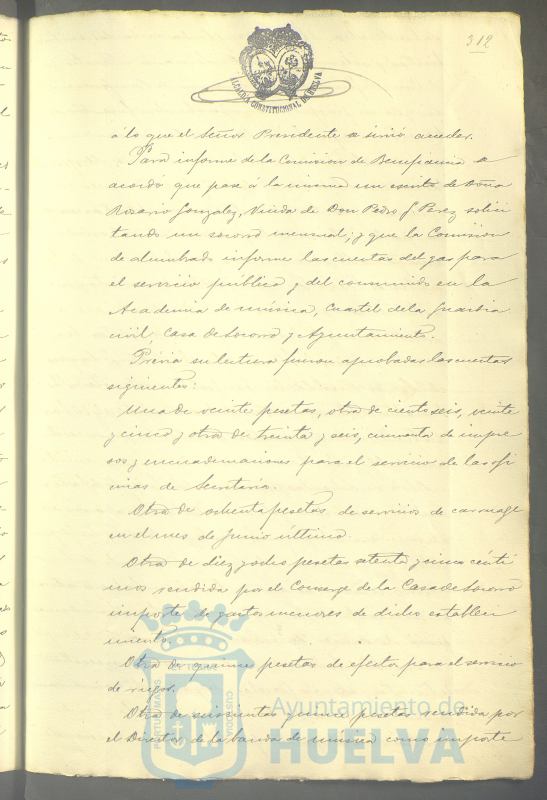 312
ALCALDIA CONSTITUCIONAL DE HUELVA
á lo que el Señor Presidente se sirvió acceder.
Para informe de la Comision de Beneficencia se
acordó que pase á la misma un escrito de Doña
Rosario Gonzalez, Viuda de Don Pedro J. Perez solici
tando un socorro mensual; y que la Comision
de alumbrado informe las cuentas del gas para
el servicio público y del consumido en la
Academia de música, Cuartel de la Guardia
civil, Casa de Socorro y Ayuntamiento.
Prévia su lectura fueron aprobadas las cuentas
siguientes:
Una de veinte pesetas, otra de ciento seis, veinte
y cinco y otra de treinta y seis, cincuenta de impre
sos y encuadernaciones para el servicio de las ofi
cinas de Secretaría.
Otra de ochenta pesetas de servicios de carruage
en el mes de Junio último.
Otra de diez y ocho pesetas setenta y cinco cénti
mos rendida por el Conserge de la Casa de Socorro
importe de gastos menores de dicho estableci
miento.
Otra de quince pesetas de efectos para el servicio
de riegos.
Otra de seiscientas quince pesetas rendida por
el Director de la banda de música como importe
PORTUS MARIS
CUSTODIA
Ayuntamiento de
HUELVA